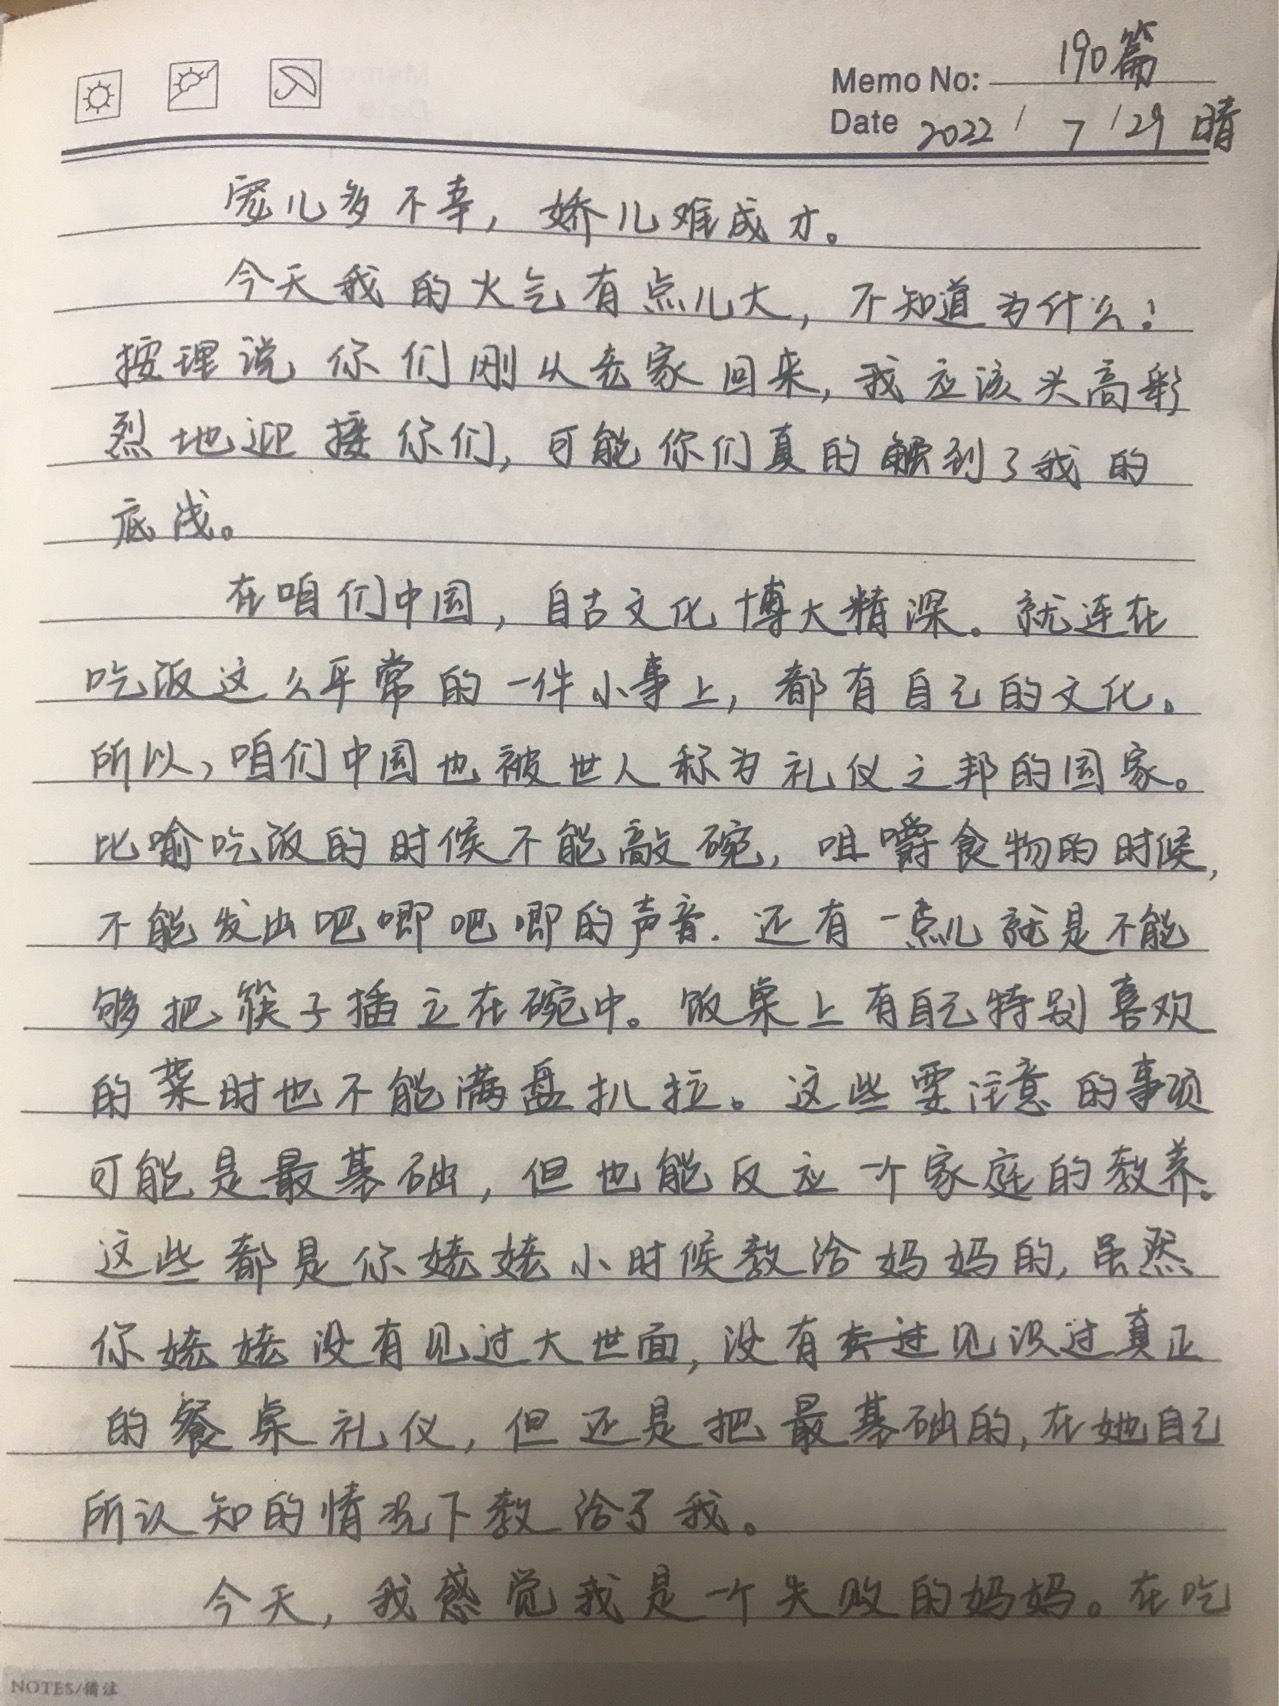 Memo No: 190篇
Date 2022/7/29 晴
宠儿多不幸，娇儿难成才。
今天我的火气有点儿大，不知道为什么！
按理说你们刚从老家回来，我应该兴高彩
烈地迎接你们，可能你们真的触到了我的
底线。
在咱们中国，自古文化博大精深。就连在
吃饭这么平常的一件小事上，都有自己的文化。
所以，咱们中国也被世人称为礼仪之邦的国家。
比喻吃饭的时候不能敲碗，咀嚼食物的时候，
不能发出吧唧吧唧的声音．还有一点儿就是不能
够把筷子插立在碗中。饭桌上有自己特别喜欢
的菜时也不能满盘扒拉。这些要注意的事项
可能是最基础，但也能反应一个家庭的教养。
这些都是你姥姥小时候教给妈妈的，虽然
你姥姥没有见过大世面，没有过见识过真正
的餐桌礼仪，但还是把最基础的，在她自己
所认知的情况下教给了我。
今天，我感觉我是一个失败的妈妈。在吃
NOTES/备注